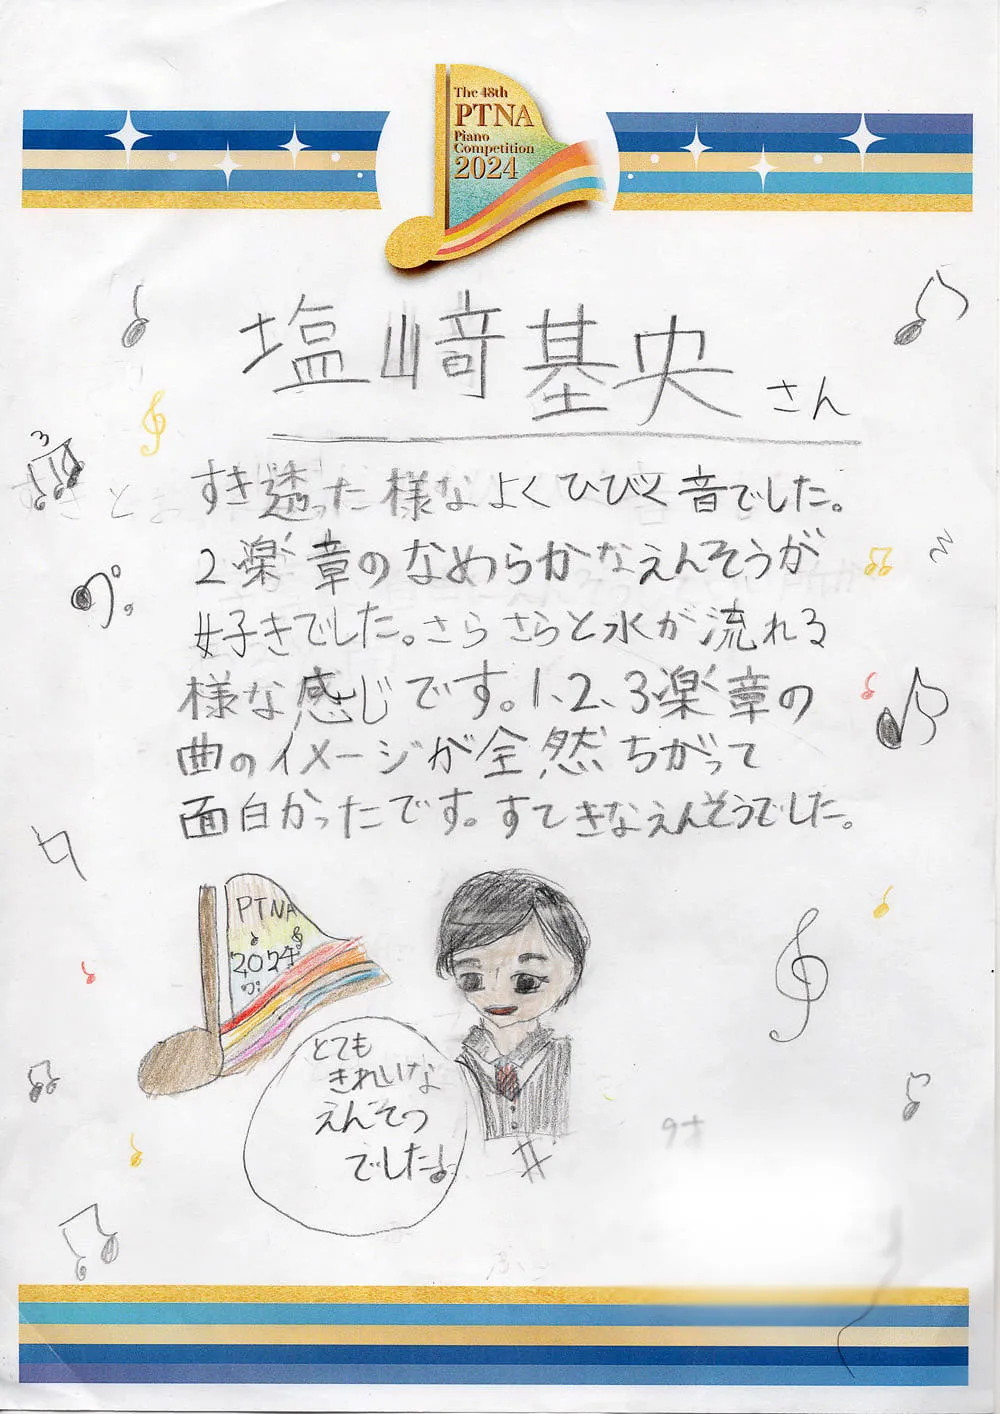 The 48th
PTNA
Piano
Competition
2024
塩﨑基央さん
すき透った様なよくひびく音でした。
2楽章のなめらかなえんそうが
好きでした。さらさらと水が流れる
様な感じです。1、2、3楽章の
曲のイメージが全然ちがって
面白かったです。すてきなえんそうでした。
PTNA
2024
とても
きれいな
えんそう
でした♪